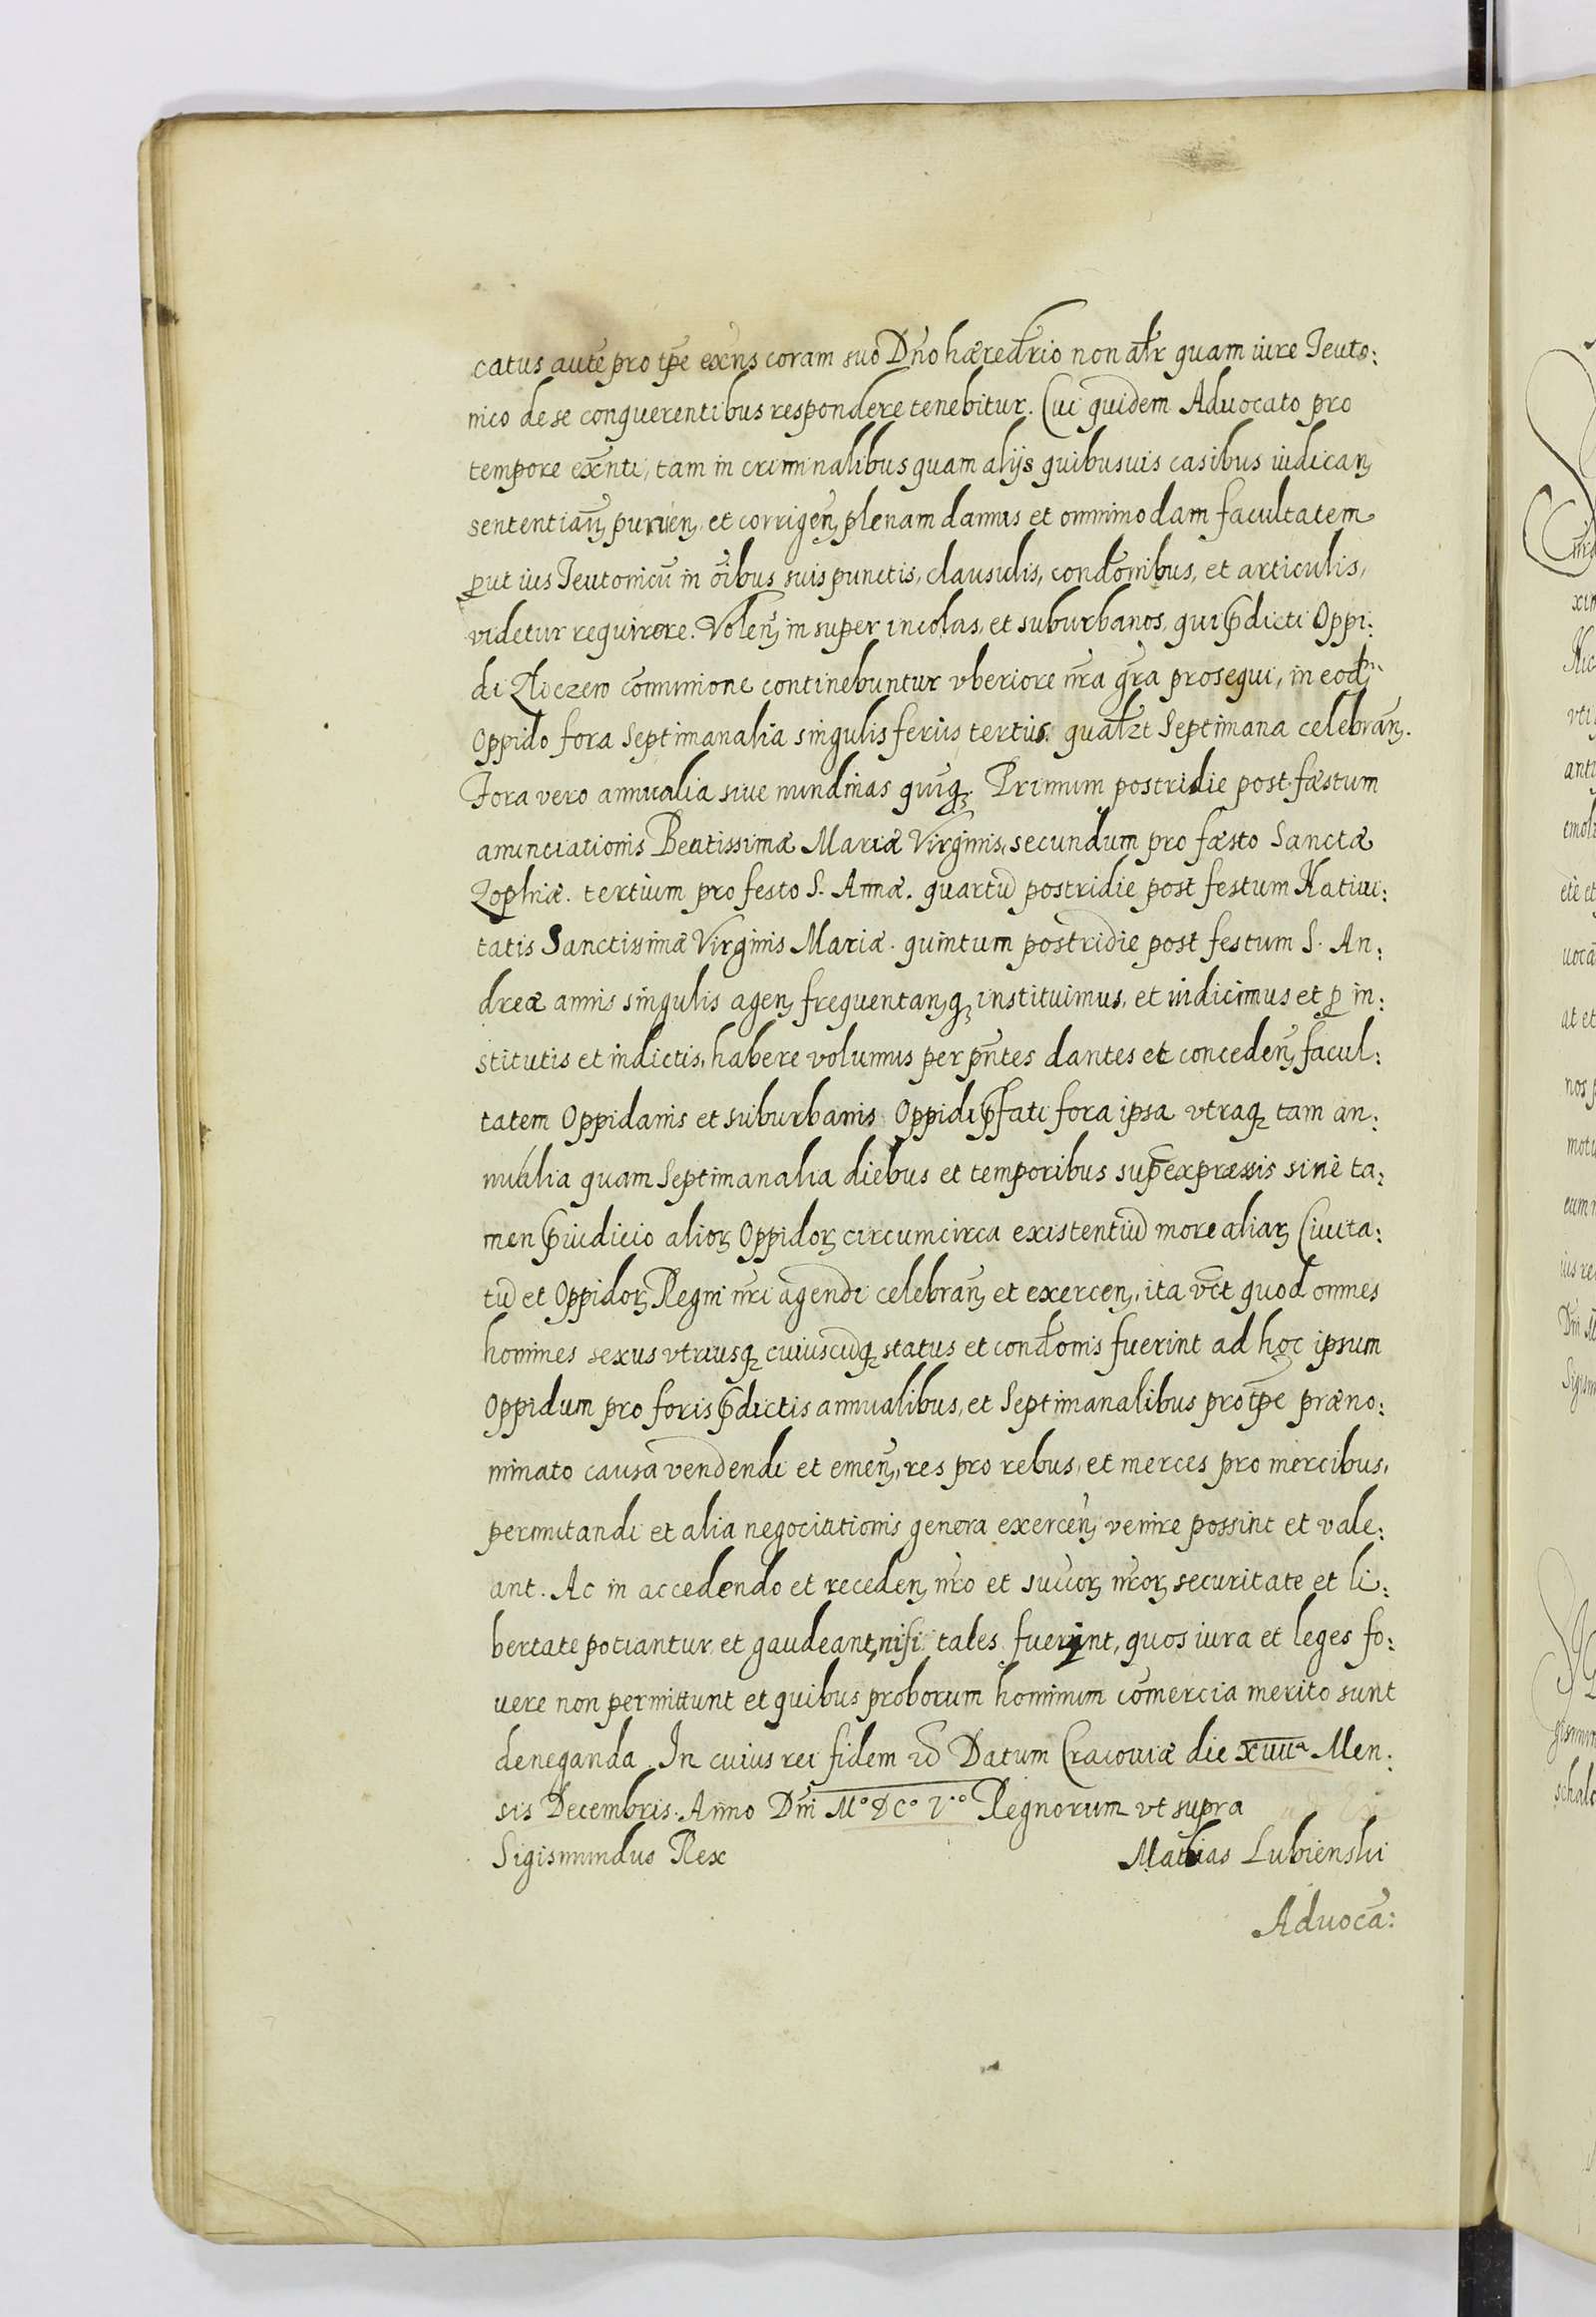 catus autē pro tp̄e exn̄s coram suo Dn̄o hæredr̄io non alr̄ quam iure Teuto:
nico de se conquerentibus respondere tenebitur. Cui quidem Aduocato pro
tempore exn̄ti, tam in criminalibus quam alijs quibusuis casibus iudicaɳ
sententiaɳ, punieɳ et corrigeɳ plenam damus et omnimodam facultatem
ꝓut ius Teutonicū in oībus suis punctis, clausulis, condōnibus, et articulis,
videtur requirere. Voleɳ insuper incolas, et suburbanos, qui p̄dicti Oppi:
di Zloczew cōmunione continebuntur vberiore nr̄a gr̄a prosequi, in eodm̄
Oppido fora Septimanalia singulis feriis tertiis qualzt Septimana celebraɳ.
Fora vero annualia siue nundinas quīqꝫ. Primum postridie post fæstum
anunciationis Beatissimæ Mariæ Virginis, secundum pro fæsto Sanctæ
Zophiæ. tertium pro festo S. Annæ. quartū postridie post festum Natiui:
tatis Sanctissimæ Virginis Mariæ. quintum postridie post festum S. An:
dreæ annis singulis ageɳ frequentaɳqꝫ instituimus, et indicimus et ꝓ in:
stitutis et indictis, habere volumus per pn̄tes dantes et concedeɳ facul:
tatem Oppidanis et suburbanis Oppidi p̄fati fora ipsa vtraqꝫ tam an:
nualia quam Septimanalia diebus et temporibus sup̄expressis sine ta:
men p̄iudicio alioꝝ Oppidoꝝ circumcirca existentiū more aliaꝝ Ciuita:
tū et Oppidoꝝ Regni nr̄i agendi celebraɳ et exerceɳ, ita vc̄t quod omnes
homines sexus vtriusqꝫ cuiuscūqꝫ status et condōnis fuerint ad hoc ipsum
Oppidum pro foris p̄dictis annualibus, et Septimanalibus pro tp̄e præno:
minato causa vendendi et emeɳ, res pro rebus, et merces pro mercibus,
permutandi et alia negociationis genera exerceɳ venire possint et vale:
ant. Ac in accedendo et recedeɳ nr̄o et succoꝝ nr̄oꝝ securitate et li:
bertate potiantur et gaudeant, nisi tales fuerint, quos iura et leges fo:
uere non permittunt et quibus proborum hominum cōmercia merito sunt
deneganda. In cuius rei fidem Datum Cracouiæ die xuiiᵃ Men:
sis Decembris. Anno Dn̄i Mº DCº Vº Regnorum vt supra
Sigismundus Rex Mathias Lubienski
Aduocā: